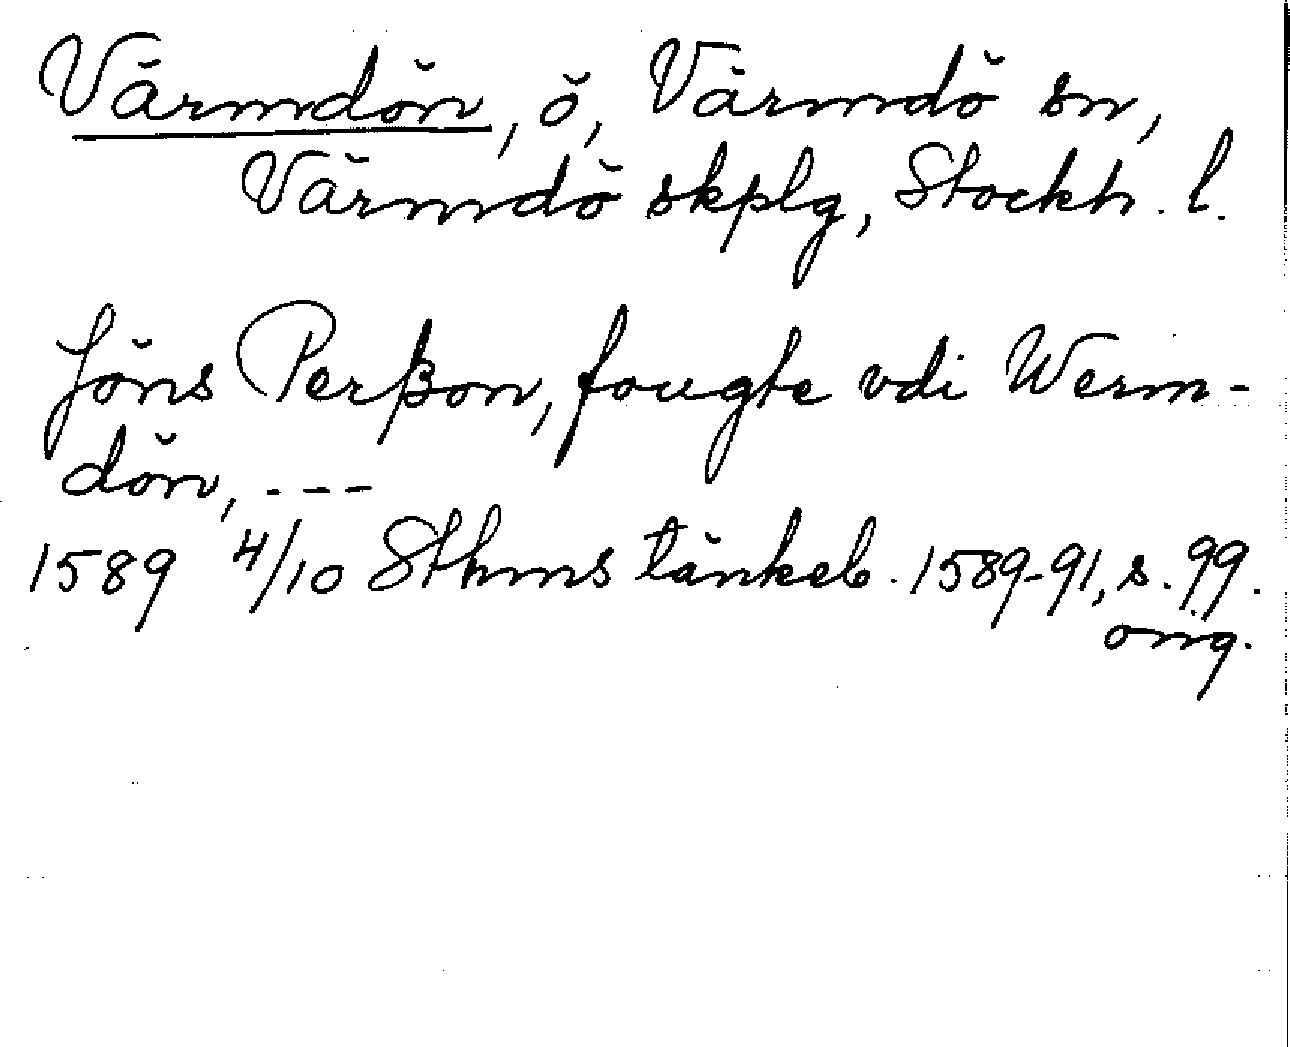 Värmdön, ö, Värmdö sn,
Värmdö skplg, Stockh. l.
Jöns Perßon, fougte vdi Werm-
dön, ---
1589 4/10 Sthms tänkeb. 1589-91, s. 99.
orig.